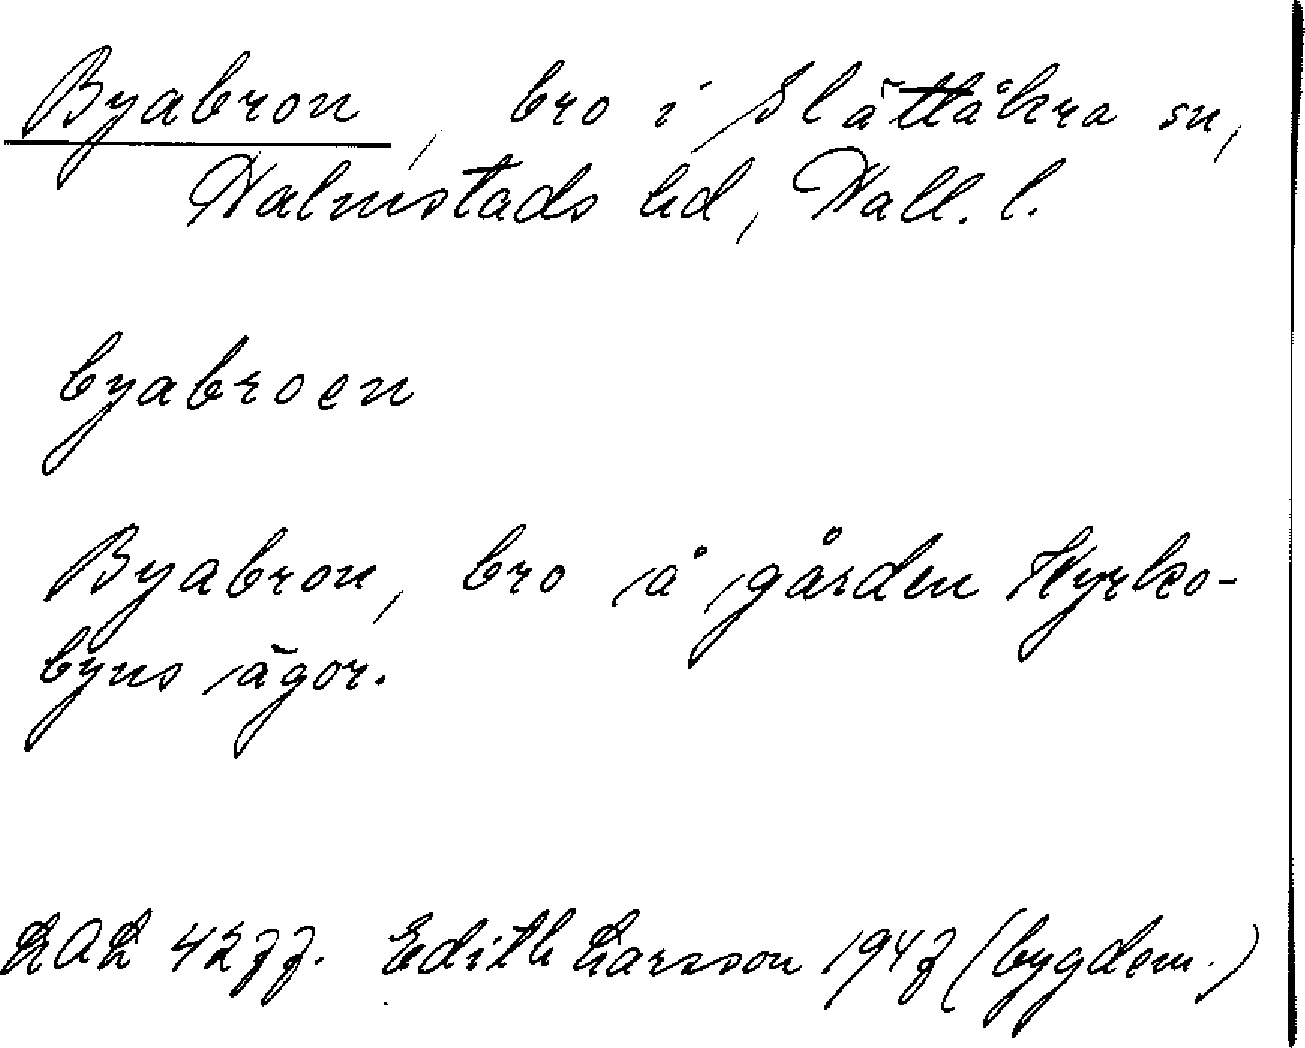 Byabron, bro i Slättåkra sn,
Halmstads hd, Hall. l.
byabroen
Byabron, bro å gården Kyrko-
byns ägor.
LAL 4277. Edith Larsson 1947 (bygdem.)